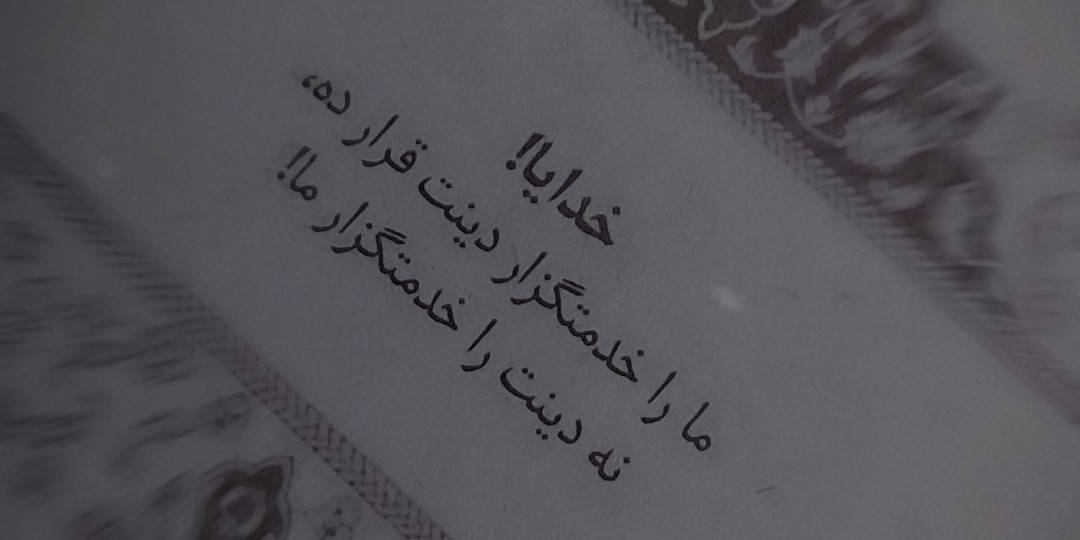 خدایا!
ما را خدمتگزار دینت قرار ده،
نه دینت را خدمتگزار ما!